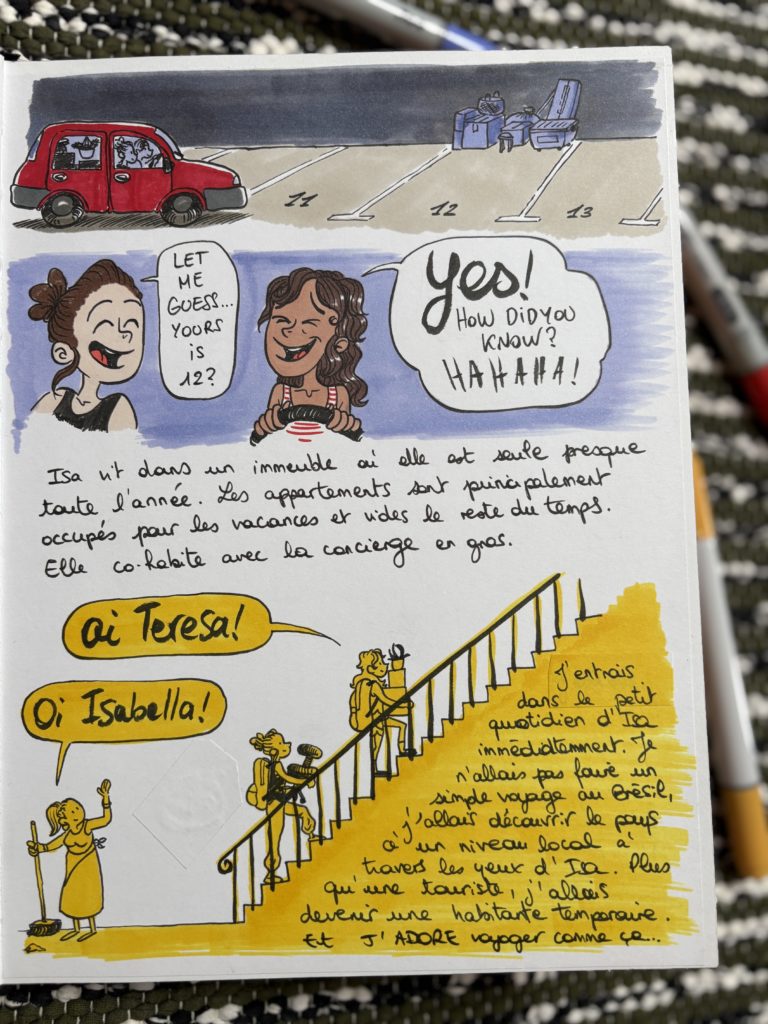 11
12
13
LET
ME
GUESS...
YOURS
is
12?
Yes!
HOW DID YOU
KNOW?
HAHAHA!
Isa vit dans un immeuble où elle est seule presque
toute l'année. Les appartements sont principalement
occupés pour les vacances et vides le reste du temps.
Elle co-habite avec la concierge en gros.
Oi Teresa!
Oi Isabella!
J'entrais
dans le petit
quotidien d'Isa
immédiatemment. Je
n'allais pas faire un
simple voyage au Brésil,
j'allais découvrir le pays
à un niveau local à
travers les yeux d'Isa. Plus
qu'une touriste, j'allais
devenir une habitante temporaire.
Et J'ADORE voyager comme ça...